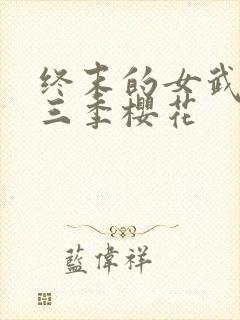 终末的女武
三季樱花
藍偉祥